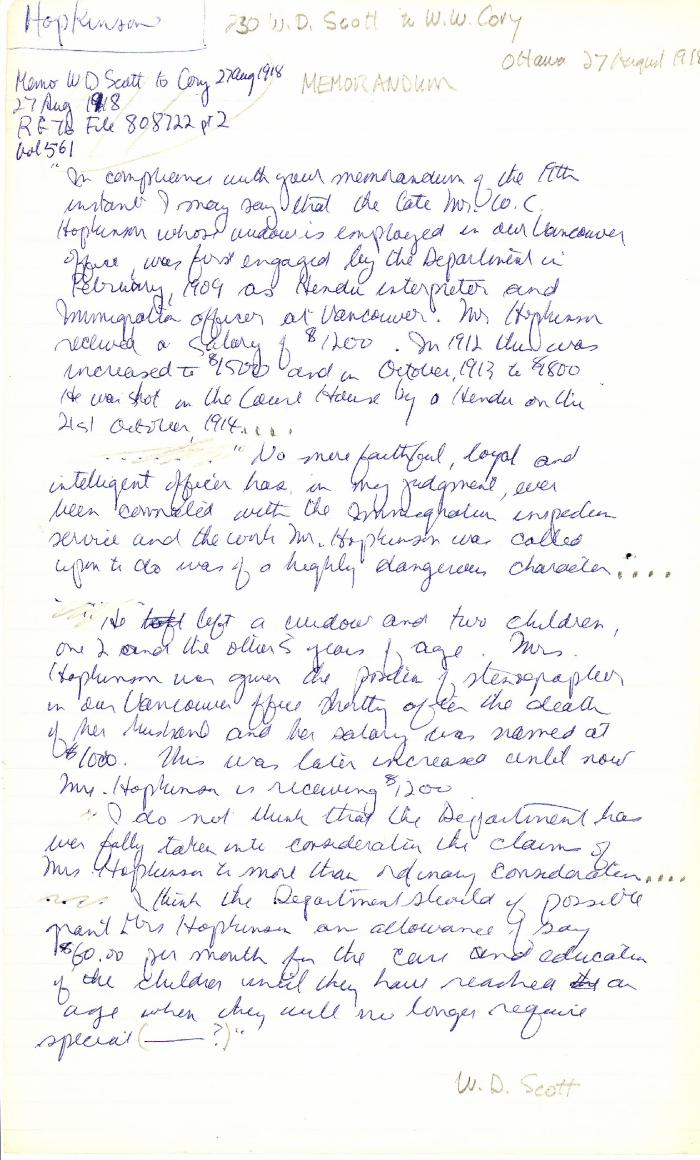 Hopkinson
230 W.D. Scott to W.W. Cory
Ottawa 27 August 1918
Memo W D Scott to Cory 27 Aug 1918
MEMORANDUM
27 Aug 1918
RG 76 File 808722 pt 2
Vol 561
"In compliance with your memorandum of the 19th
instant I may say that the late Mr. W. C.
Hopkinson whose widow is employed in our Vancouver
office, was first engaged by the Department in
February, 1909 as Hendu interpreter and
Immigration officer at Vancouver. Mr Hopkinson
received a salary of $1200. In 1912 this was
increased to $1500 and in October, 1913 to $1800
He was shot in the Court House by a Hendu on the
21st October, 1914....
...... "No more faithful, loyal and
intelligent officer has, in my judgment, ever
been connected with the Immigration inspection
service and the work Mr. Hopkinson was called
upon to do was of a highly dangerous character.....
"He left a widow and two children,
one 2 and the other 5 years of age. Mrs.
Hopkinson was given the position of stenographer
in our Vancouver office shortly after the death
of her husband and her salary was named at
$1000. This was later increased until now
Mrs. Hopkinson is receiving $1200
"I do not think that the Department has
ever fully taken into consideration the claims of
Mrs. Hopkinson to more than ordinary consideration....
.... I think the Department should if possible
grant Mrs Hopkinson an allowance of say
$60.00 per month for the care and education
of the children until they have reached the an
age when they will no longer require
special (—— ?)"
W. D. Scott